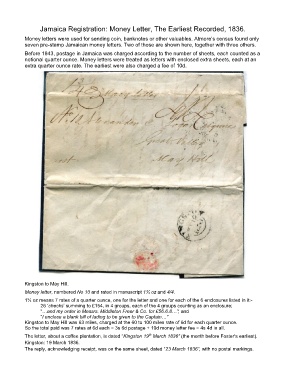 Jamaica Registration: Money Letter, The Earliest Recorded, 1836.
Money letters were used for sending coin, banknotes or other valuables. Almore's census found only
seven pre-stamp Jamaican money letters. Two of those are shown here, together with three others.
Before 1843, postage in Jamaica was charged according to the number of sheets, each counted as a
notional quarter ounce. Money letters were treated as letters with enclosed extra sheets, each at an
extra quarter ounce rate. The earliest were also charged a fee of 10d.
Money Letter
Alexander
Esquire
May Hill
Kingston to May Hill.
Money letter, numbered No 16 and rated in manuscript 1¾ oz and 4/4.
1¾ oz means 7 rates of a quarter ounce, one for the letter and one for each of the 6 enclosures listed in it:-
26 'checks' summing to £164, in 4 groups, each of the 4 groups counting as an enclosure;
"…and my order in Messrs. Middleton Freer & Co. for £56.6.8…"; and
"I enclose a blank bill of lading to be given to the Captain…"
Kingston to May Hill was 63 miles, charged at the 60 to 100 miles rate of 6d for each quarter ounce.
So the total paid was 7 rates at 6d each = 3s 6d postage + 10d money letter fee = 4s 4d in all.
The letter, about a coffee plantation, is dated "Kingston 19th March 1836" (the month before Foster's earliest).
Kingston: 19 March 1836.
The reply, acknowledging receipt, was on the same sheet, dated "23 March 1836", with no postal markings.